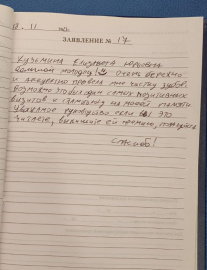 18. 11
ЗАЯВЛЕНИЕ № 17
Кузьмина Елизавета Юрьевна
большой молодец! очень бережно
и аккуратно провела мне чистку зубов.
возможно это один самых позитивных
визитов к стоматологу на моей памяти
Уважаемое руководство если вы это
читаете, выпишите ей премию, пожалуйста
Спасибо!